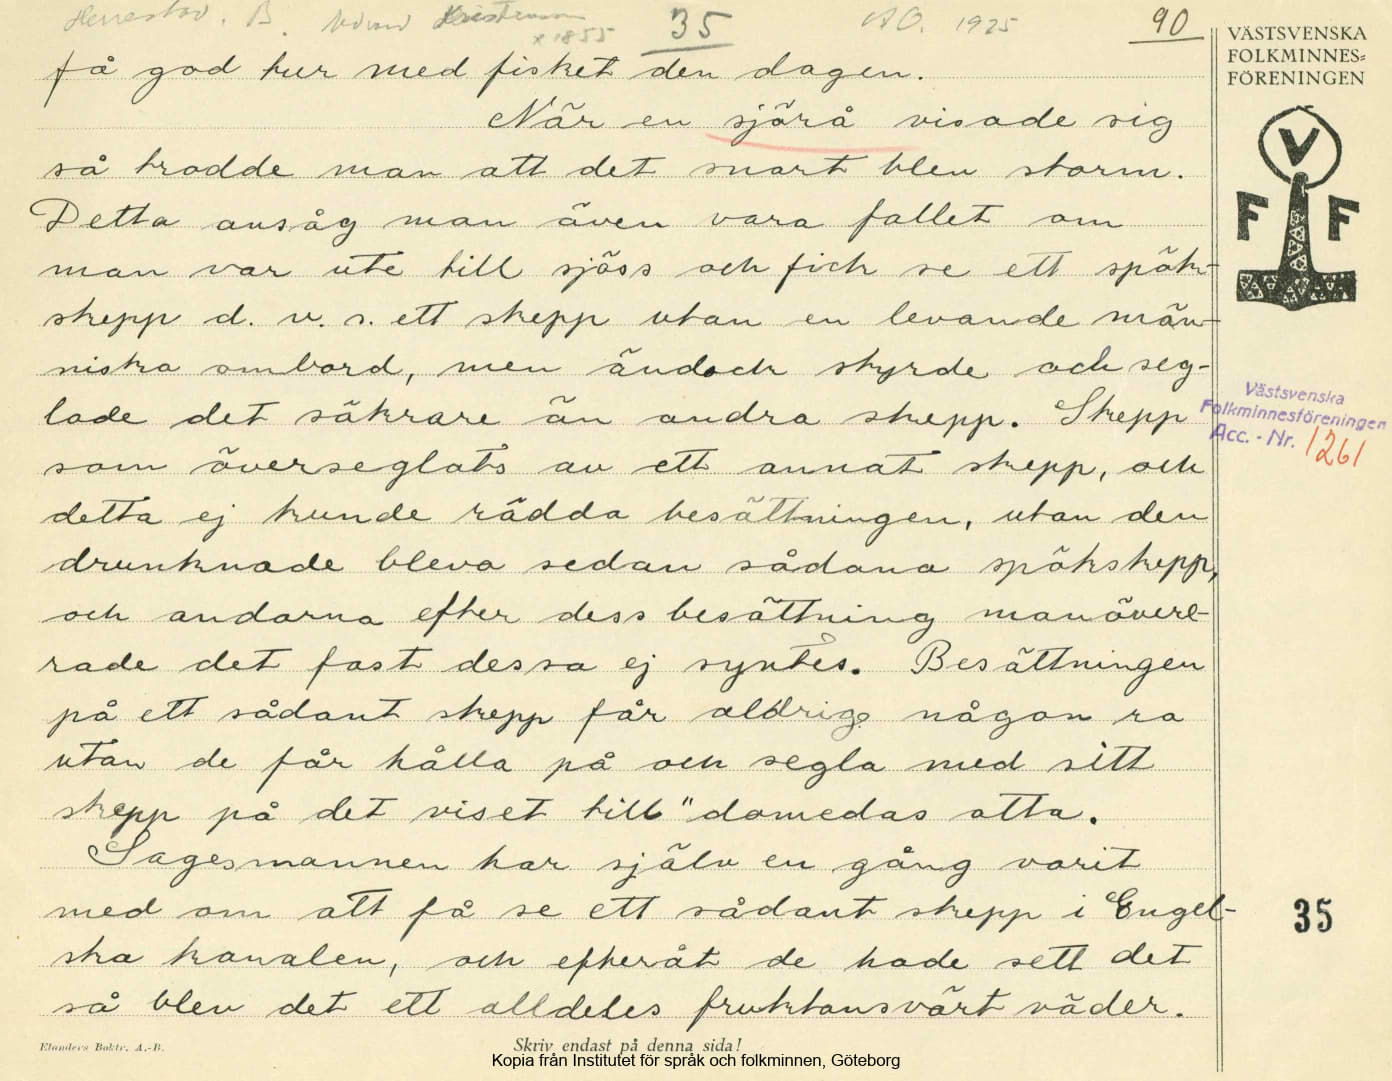 Herrestad. B. Kristensson 35 AO. 1925 90
x 1855
få god tur med fisket den dagen.
När en sjörå visade sig
så trodde man att det snart blev storm.
Detta ansåg man även vara fallet om
man var ute till sjöss och fick se ett spök-
skepp d. v. s. ett skepp utan en levande män-
niska ombord, men ändock styrde och seg-
lade det säkrare än andra skepp. Skepp
som överseglats av ett annat skepp, och
detta ej kunde rädda besättningen, utan den
drunknade bleva sedan sådana spökskepp,
och andarna efter dess besättning manövere-
rade det fast dessa ej syntes. Besättningen
på ett sådant skepp får aldrig någon ro
utan de får hålla på och segla med sitt
skepp på det viset till "domedas otta.
Sagesmannen har själv en gång varit
med om att få se ett sådant skepp i Engel-
ska kanalen, och efteråt de hade sett det
så blev det ett alldeles fruktansvärt väder.
VÄSTSVENSKA
FOLKMINNES=
FÖRENINGEN
V
F F
Västsvenska
Folkminnesföreningen
Acc. - Nr. 1261
35
Elanders Boktr. A.-B.
Skriv endast på denna sida!
Kopia från Institutet för språk och folkminnen, Göteborg